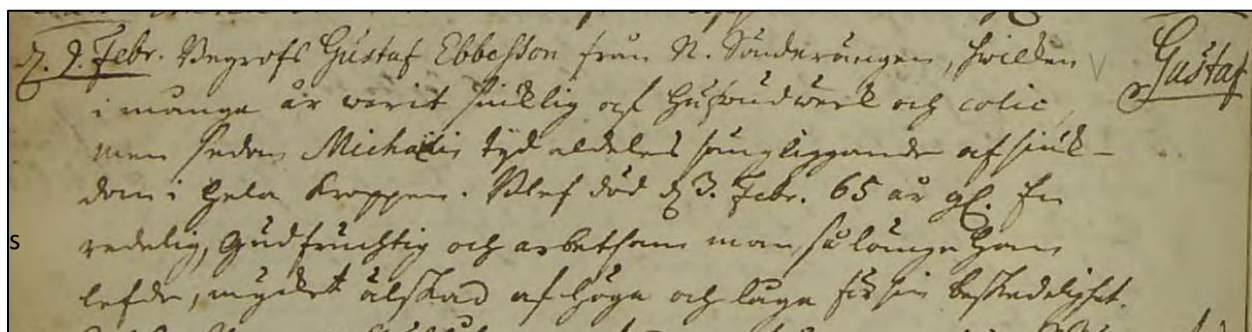 D. 9. Febr. Begrofs Gustaf Ebbesson från N. Sönderängen, hwilken
Gustaf
i många år warit siuklig af hufwudwerk och colic,
men sedan Michaelis tyd aldeles sängliggande af siuk-
dom i hela kroppen. Blef död d. 3. Febr. 65 år gl. En
s
redelig, Gudfruchtig och arbetsam man så länge han
lefde, mycket älskad af höga och låga för sin beskedelighet.